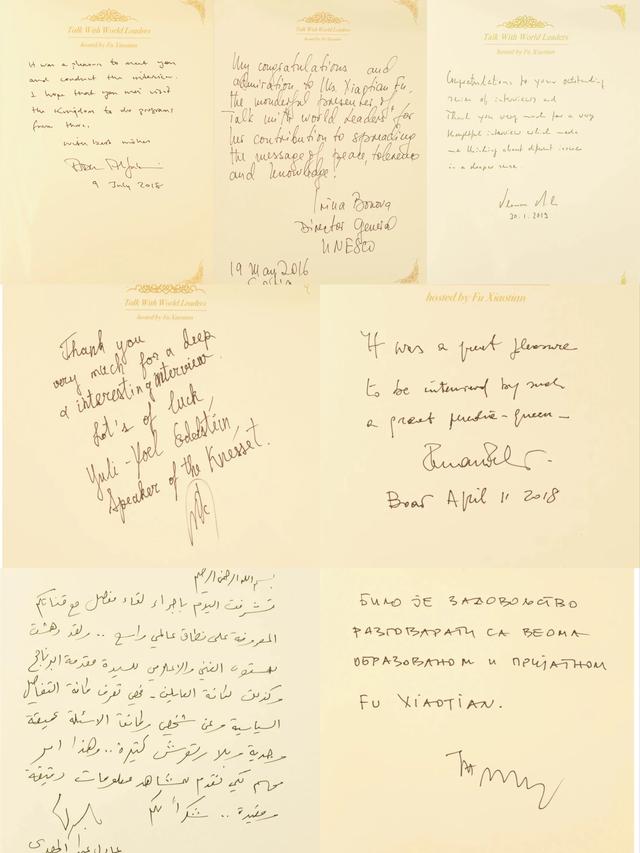 Talk With World Leaders
hosted by Fu Xiaotian
It was a pleasure to meet you
and conduct the interview.
I hope that you will visit
the Kingdom to do programs
from there.
with best wishes
9 July 2018
Talk With World Leaders
hosted by Fu Xiaotian
My congratulations and
admiration to Ms. Xiaotian Fu,
the wonderful presenter of
"Talk with world Leaders" for
her contribution to spreading
the message of peace, tolerance
and knowledge!
Irina Bokova
Director General
UNESCO
19 May 2016
Talk With World Leaders
hosted by Fu Xiaotian
Congratulations to your outstanding
series of interviews and
thank you very much for a very
thoughtful interview which made
me thinking about different issues
in a deeper sense.
30.1.2019
Talk With World Leaders
hosted by Fu Xiaotian
Thank you
very much for a deep
a interesting interview.
Lot's of luck,
Yuli-Yoel Edelstein,
Speaker of the Knesset.
hosted by Fu Xiaotian
It was a great pleasure
to be interviewed by such
a great media-queen
Boao April 11 2018
بسم الله الرحمن الرحيم
تشرفت اليوم بإجراء لقاء مفصل مع قناتكم
المعروفة على نطاق عالمي واسع .. ولقد دهشت
للمستوى الفني والإعلامي للسيدة مقدمة البرنامج
وكذلك لكافة العاملين - فهي تعرف كافة التفاصيل
السياسية وعن شخصي وكافة الاسئلة عميقة
وجدية وبلا رتوش كثيرة .. وهذا امر
مهم لكي تقدم للمشاهد معلومات دقيقة
ومفيدة .. شكراً لكم
عادل عبد المهدي
БИЛО ЈЕ ЗАДОВОЉСТВО
РАЗГОВАРАТИ СА ВЕОМА
ОБРАЗОВАНОМ И ПРИЈАТНОМ
FU XIAOTIAN.